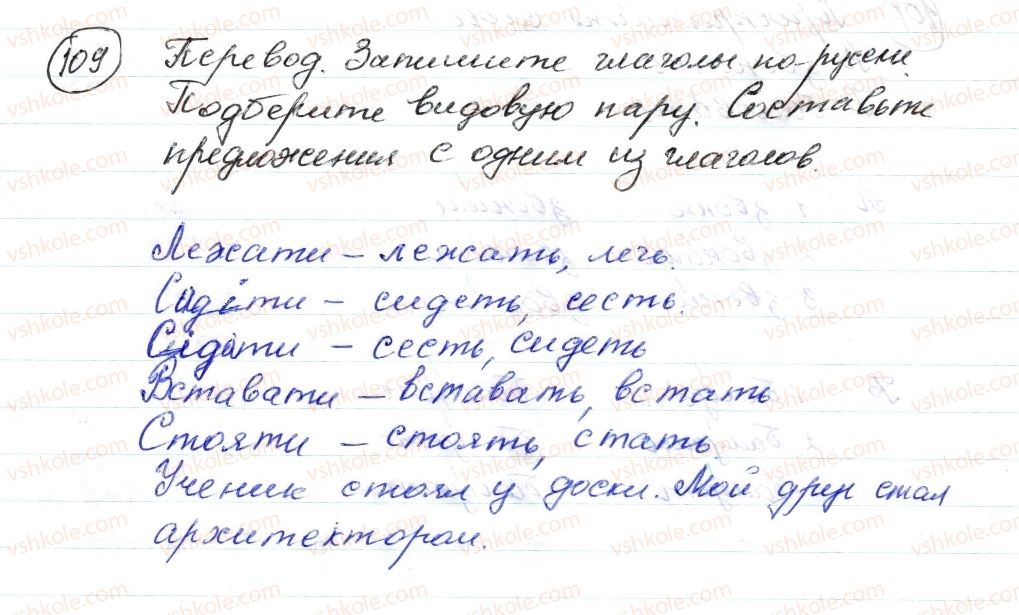 109 Перевод. Запишите глаголы по-русски.
Подберите видовую пару. Составьте
предложения с одним из глаголов.
Лежати – лежать, лечь.
Сидіти – сидеть, сесть.
Сідати – сесть, сидеть
Вставати – вставать, встать
Стояти – стоять, стать.
Ученик стоял у доски. Мой друг стал
архитектором.